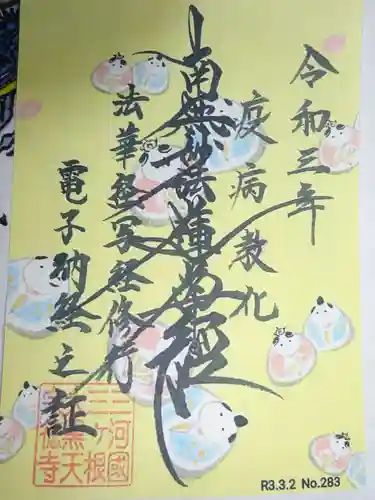 令和三年
疫病教化
南無妙法蓮華経
法華経写経修行
電子納経之証
三河國
三ヶ根
R3.3.2 No.283